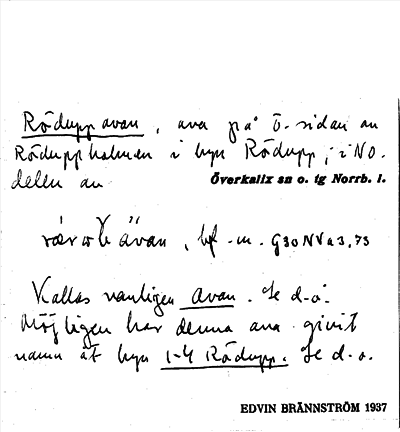 Rödupp avan, ava på ö. sidan av
Röduppholmen i byn Rödupp, i NO.
delen av Överkalix sn o. tg Norrb. l.
ävan, bf. -m. G30NVa3,73
Kallas vanligen Avan. Se d.o.
Möjligen har denna ava givit
namn åt byn 1-4 Rödupp. Se d.o.
EDVIN BRÄNNSTRÖM 1937